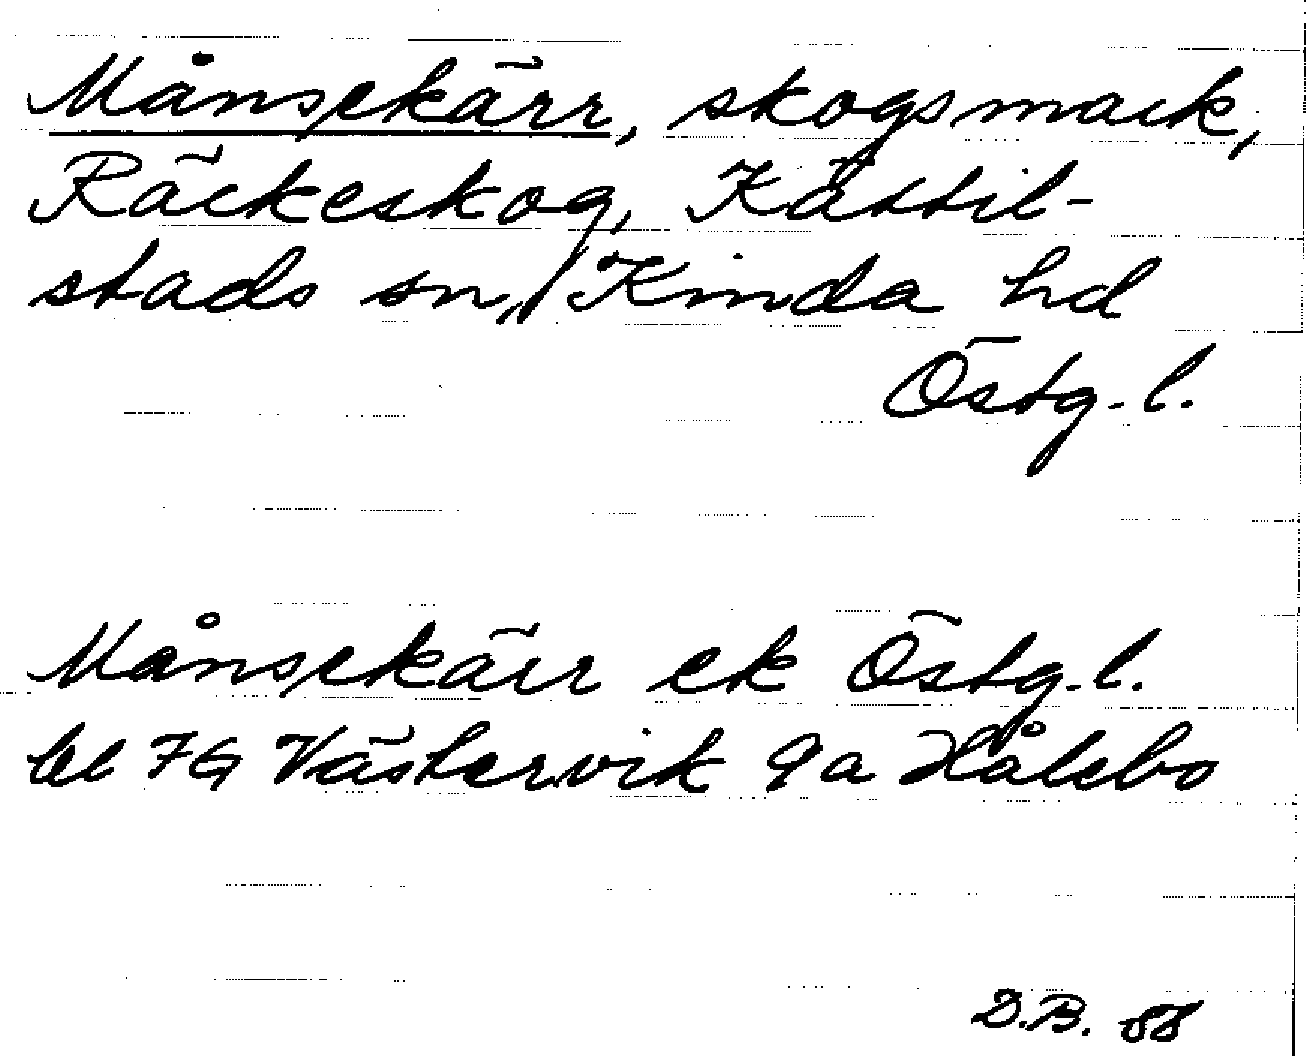 Månsekärr, skogsmark,
Räckeskog, Kättil-
stads sn, Kinda hd
Östg. l.
Månsekärr ek Östg. l.
bl 7G Västervik 9a Hålebo
D.B. 88